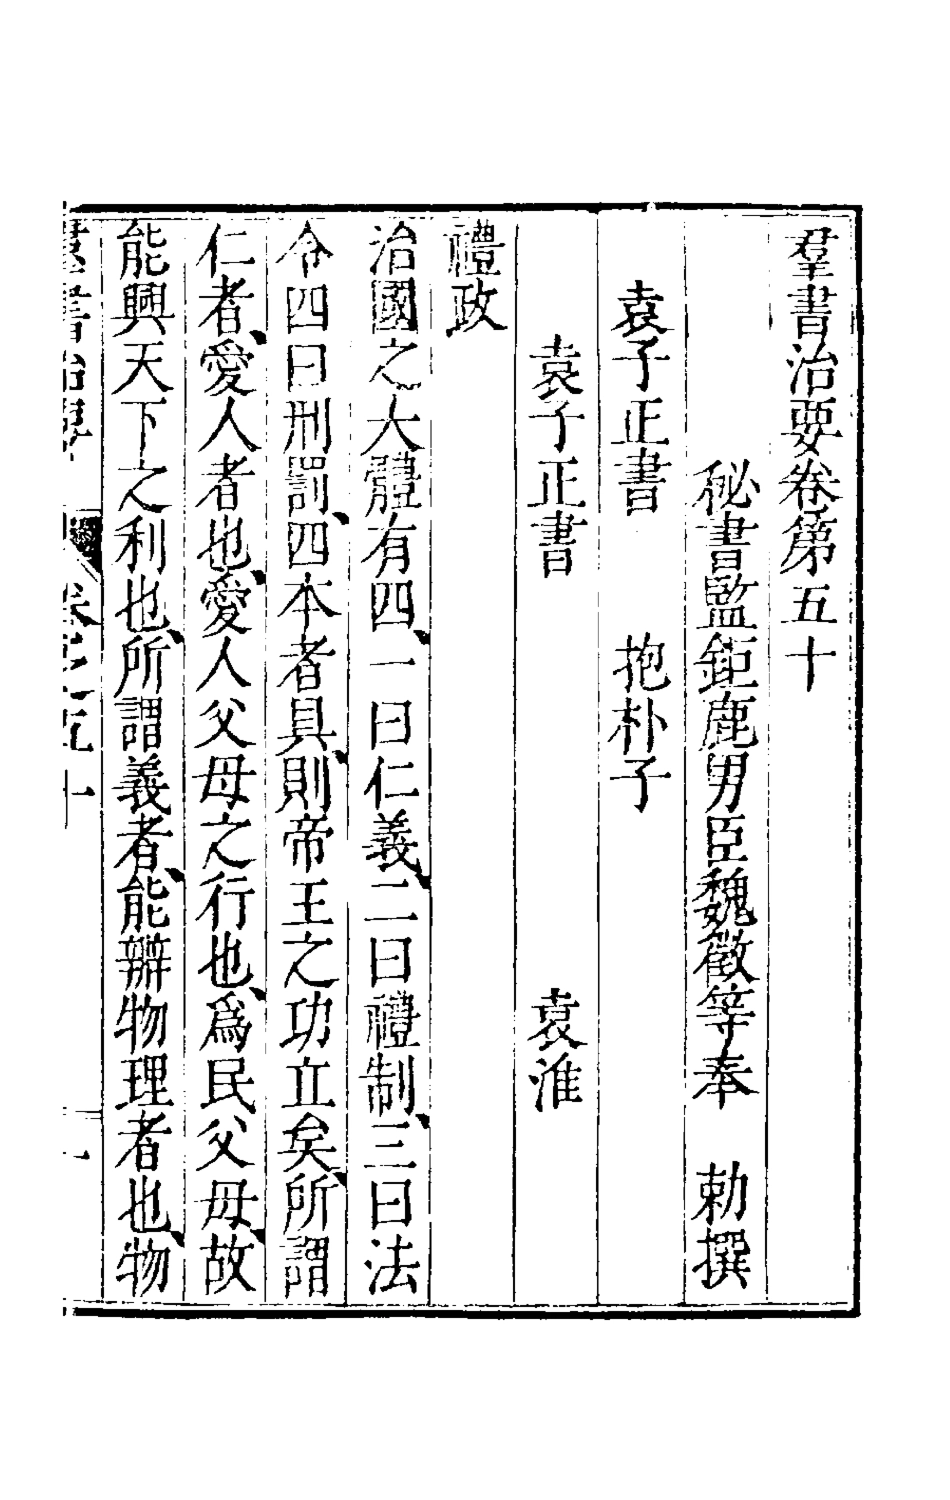 羣書治要卷第五十
秘書監鉅鹿男臣魏徵等奉　勅撰
袁子正書　抱朴子
袁子正書　袁淮
禮政
治國之大體有四、一曰仁義、二曰禮制、三曰法
令、四曰刑罰、四本者具、則帝王之功立矣、所謂
仁者、愛人者也、愛人父母之行也、爲民父母、故
能興天下之利也、所謂義者、能辨物理者也、物
羣書治要　卷之五十　一